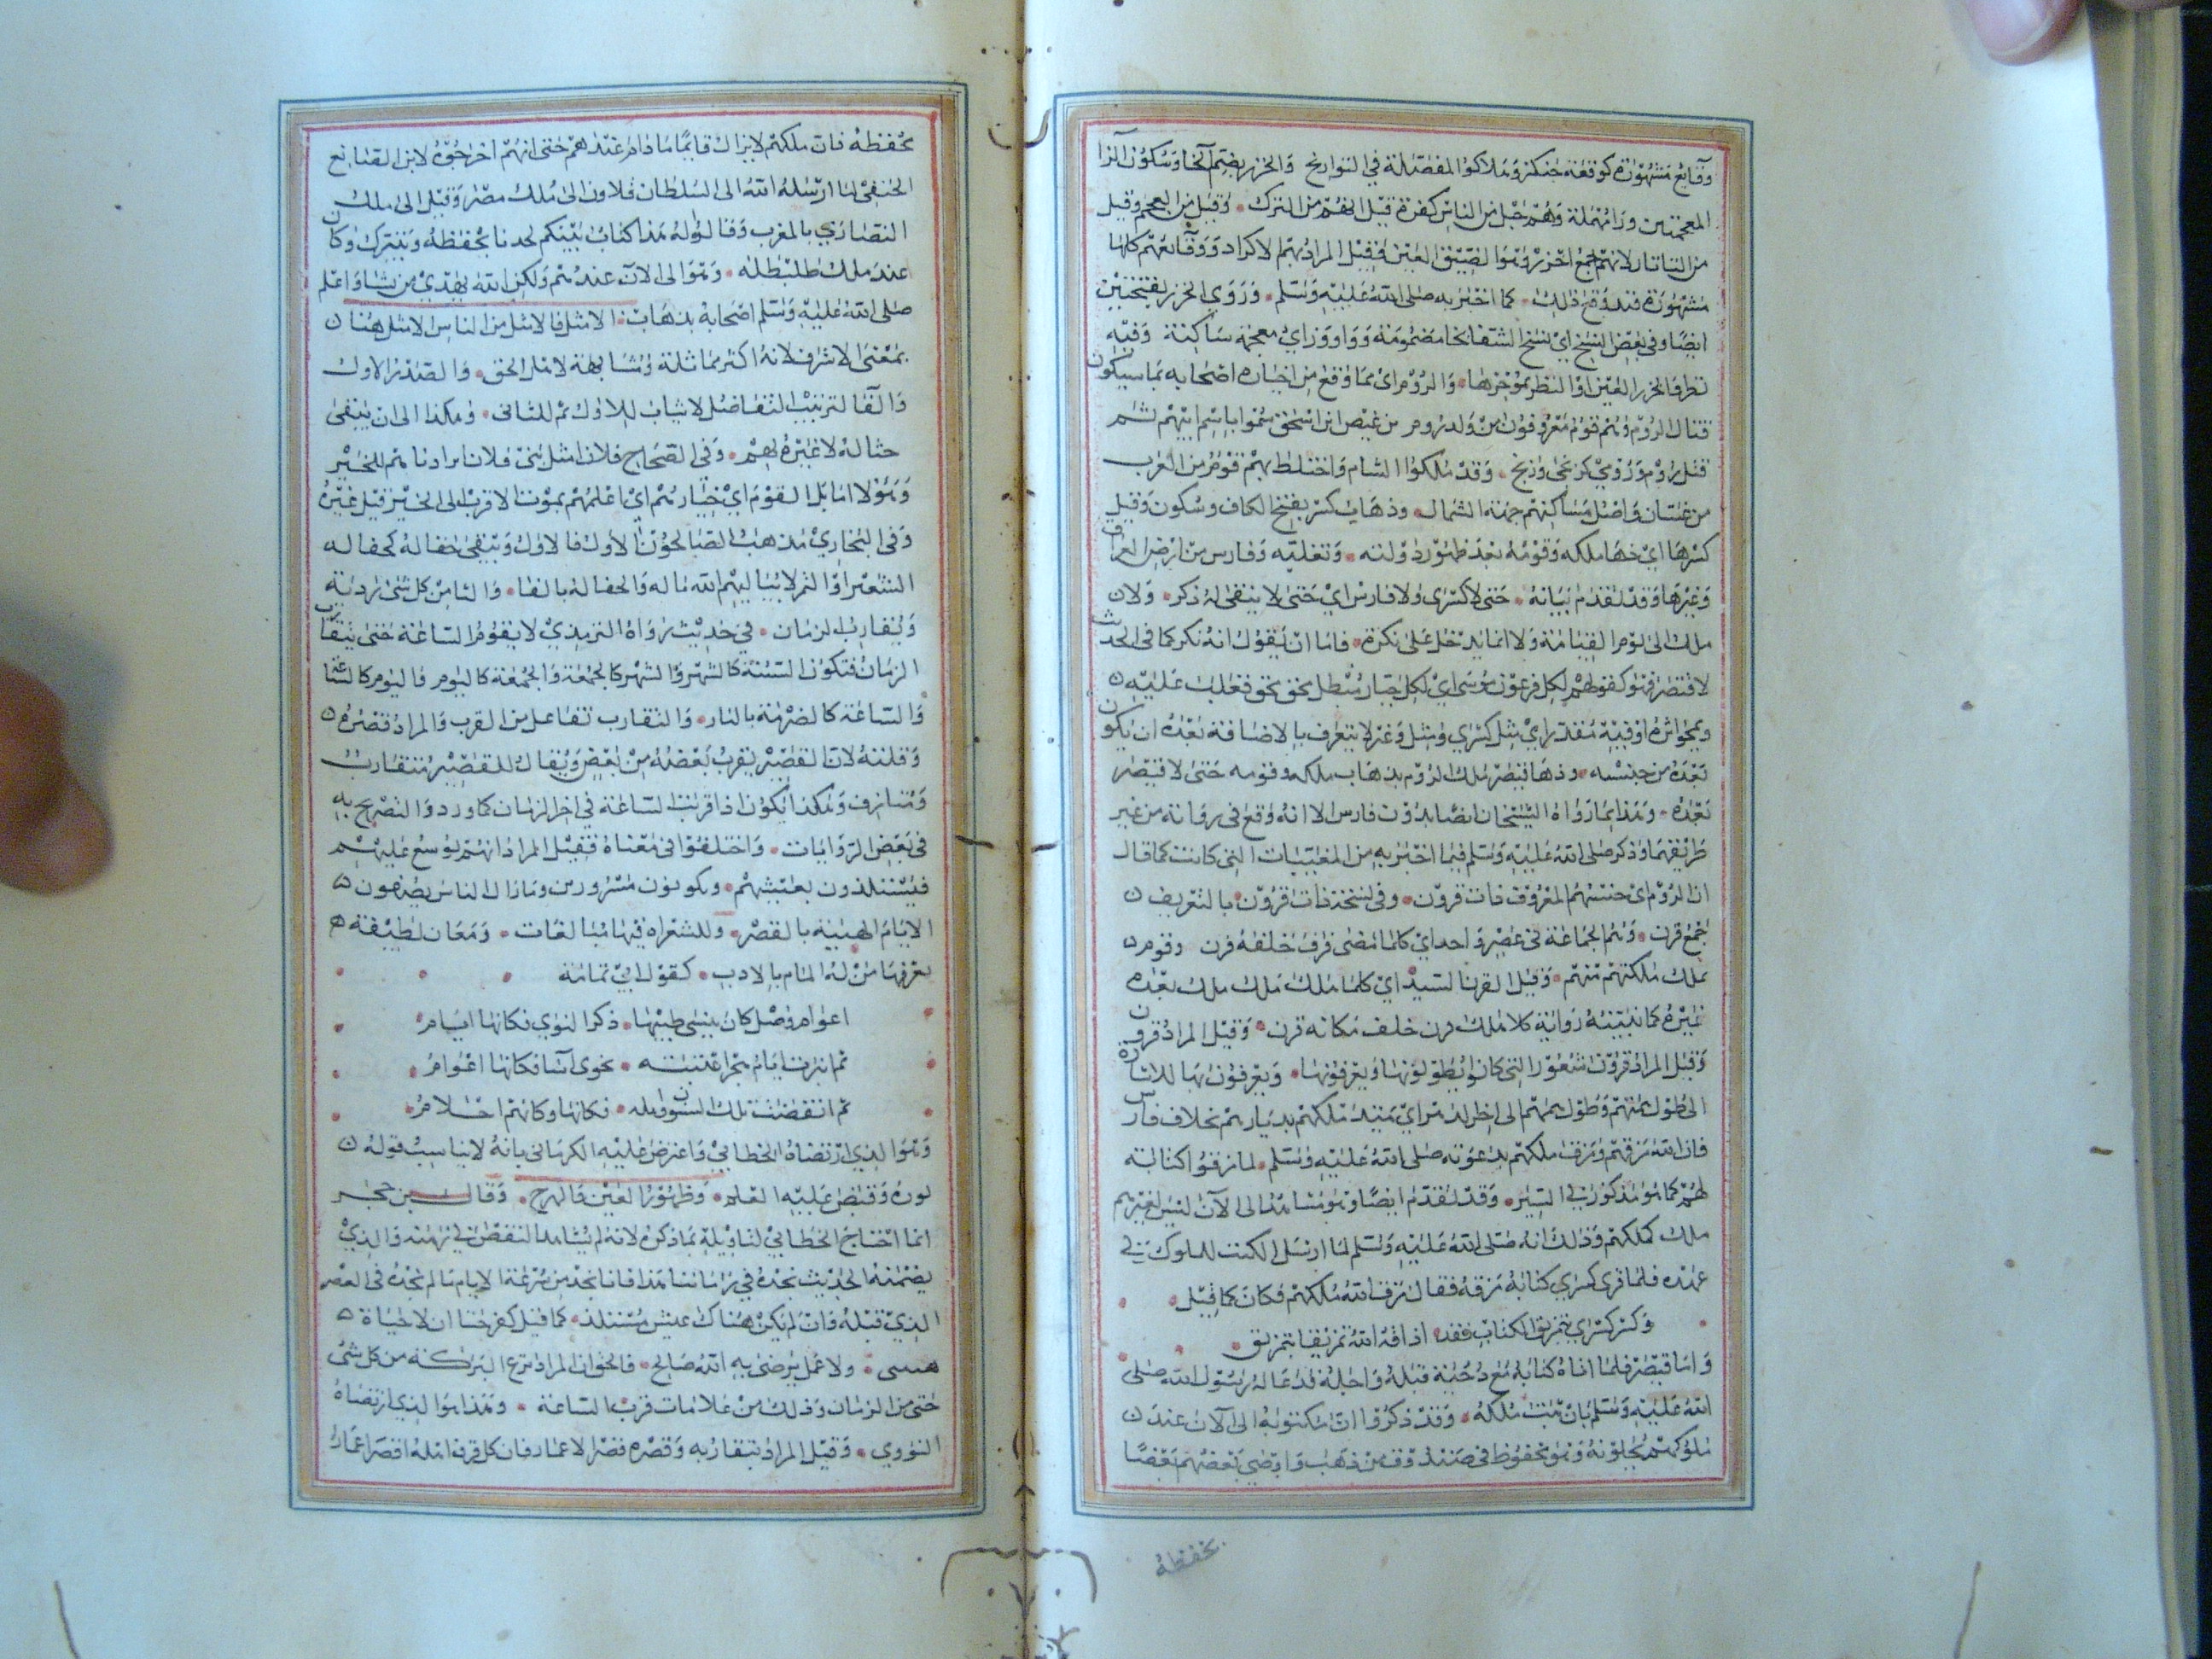 وقايع مشهورة كوقعة جنكز وهلاكوا المفصلة في التواريخ والخزر بضم الخا وسكون الزا
المعجمتين ورا مهملة وهم جبل من الناس كفرة قيل انهم من الترك وقيل من العجم وقيل
من التاتار لانهم جمع اخزر وهو الضيق العين وقيل المراد بهم الاكراد ووقايعهم كلها
مشهورة فقد وقع ذلك كما اخبر به صلى الله عليه وسلم وروي الخزر بفتحتين
ايضا وفي بعض النسخ اي نسخ الشفا بخا مضمومة وواو وزاي معجمة ساكنة وفيه
نظر والخزر العين او النظر بموخرها والروم اي مما وقع من اخباره اصحابه بما سيكون
قتال الروم وهم قوم معروفون من ولد روم بن عيص ابن اسحق سموا باسم ابيهم ثم
قيل روم ورومي كزنجي وزنج وقد ملكوا الشام واختلط بهم قوم من العرب
من غسان واصل مساكنهم جهة الشمال وذهاب كسرى بفتح الكاف وسكون وقيل
كسرها اي ذهاب ملكه وقومه بعد ظهور دولته وتغلبه وفارس من ارض العراق
وغيرها وقد تقدم بيانه حتى لا كسرى ولا فارس اي حتى لا يبقى له ذكر ولان
ملك الى يوم القيامة ولا انما يدخل على نكرة فاما ان يقول انه نكر كما في الحديث
لا قيصر فهو كقولهم لكل فرعون موسى اي لكل جبار مبطل محق فغلب عليه
ويجوز انه او فيه مقدر اي مثل كسرى ومثل وغير لا يتعرف بالاضافة بعده ان يكون
بعده من جنسه وذهاب قيصر ملك الروم بذهاب ملكه وقومه حتى لا قيصر
بعده وهذا مما رواه الشيخان ايضا بدون فارس الا انه وقع في رواية من غير
طريقهما وذكر صلى الله عليه وسلم فيما اخبر به من المغيبات التي كانت كما قال
ان الروم اي جنسهم المعروف ذات قرون وفي نسخة ذات قرون بالتعريف
جمع قرن وهم الجماعة في عصر واحد اي كلما مضى قرن خلفه قرن وقوم
تملك مملكتهم منهم وقيل القرن السيد اي كلما ملك ملك ملك بعده
غيره كما تبينه رواية كلا ملك قرن خلف مكانه قرن وقيل المراد قرون
وقيل المراد قرون شعور التي كانوا يطولونها ويعرفونها ويعرفون بها للاشارة
الى طول مدتهم وطول الى اخر الدهر اي مدة ملكهم بديارهم بخلاف فارس
فان الله مزقهم ومزق ملكهم بدعوته صلى الله عليه وسلم لما مزقوا كتابته
لهم كما هو مذكور في السير وقد تقدم ايضا وهو مشاهد الى الان ليس لغيرهم
ملك كملكهم وذلك انه صلى الله عليه وسلم لما ارسل الكتب للملوك في
عهده فلما قرى كسرى كتابه مزقه فقال مزق الله ملكهم فكان كما قيل
وكسر كسرى بتمزيق الكتاب فقد اذاقه الله تمزيقا بتمزيق
واما قيصر فلما اتاه كتابه مع دحية قبله واجله فدعا له رسول الله صلى
الله عليه وسلم بان يثبت ملكه وقد ذكروا ان مكتوبه الى الان عند
ملوكهم يجلونه وهو محفوظ في صندوق من ذهب واوصى بعضهم بعضا
بحفظه
بحفظه فان ملكهم لا يزال قايما ما دام عندهم حتى انهم اخرجوه لابن الصايغ
الحنفي لما ارسله الله الى السلطان قلاون الى ملك مصر وقيل الى ملك
النصارى بالمغرب وقالوا له هذا كتاب نبيكم لجدنا نحفظه ونتبرك وكان
عند ملك طليطله وهو الى الان عندهم ولكن الله يهدي من يشا واعلم
صلى الله عليه وسلم اصحابه بذهاب الامثل فالامثل من الناس الامثل هنا
بمعنى الاشرف لانه اكثر مماثلة ومشابهة لاهل الحق والصدر الاول
والفا لترتيب التفاضل لاثبات للاول ثم للثاني وهكذا الى ان يبقى
حثالة لا غيره بهم وفي الصحاح فلان امثل بني فلان ادناهم للخير
وهولا اماثل القوم اي خيارهم اي اعلمهم بموت الاقرب الى الخير قيل غيره
وفي البخاري يذهب الصالحون الاول فالاول ويبقى حفالة كحفالة
الشعير او التمر لا يباليهم الله باله والحفالة بالفا والثا من كل شي رديه
وتقارب الزمان في حديث رواه الترمذي لا يقوم الساعة حتى يتقارب
الزمان فتكون السنة كالشهر والشهر كالجمعة والجمعة كاليوم واليوم كالساعة
والساعة كالضرمة بالنار والتقارب تفاعل من القرب والمراد قصره
وقلته لان القصير يقرب بعضه من بعض ويقال للقصير متقارب
ومتازف وهكذا يكون اذا قربت الساعة في اخر الزمان كما ورد التصريح به
في بعض الروايات واختلفوا في معناه فقيل المراد انهم يوسع عليهم
فيستلذون بعيشهم ويكونون مسرورين وما زال الناس يصفون
الايام الهنية بالقصر وللشعراء فيها مبالغات ومعان لطيفة
يعرفها من له المام بالادب كقول ابي تمامة
اعوام وصل كان ينسي طيبها ذكر النوى فكانها ايام
ثم انبرت ايام هجر اعقبت نحوي اسا فكانها اعوام
ثم انقضت تلك السنون واهلها فكانها وكانهم احلام
وهو الذي ارتضاه الخطابي واعترض عليه الكرماني بانه لا يناسب قوله
لوره وقبض عليه العلم وظهور الفتن والهرج وقال ابن حجر
انما احتاج الخطابي لتاويله بما ذكره لانه لم يشاهد النقص في زمنه والذي
يضمنه الحديث نجده في زماننا هذا فانا نجد من سرعة الايام ما لم نجده في العصر
الذي قبله وان لم يكن هناك عيش مستلذ كما قيل كفى حزنا ان لا حياة
هنيى ولا عمل يرضى به الله صالح فالحق ان المراد نزع البركة من كل شي
حتى من الزمان وذلك من علامات قرب الساعة وهذا هو الذي ارتضاه
النووي وقيل المراد بتقاربه وقصره قصر الاعمار فان كل قرن اهله اقصر اعمارا